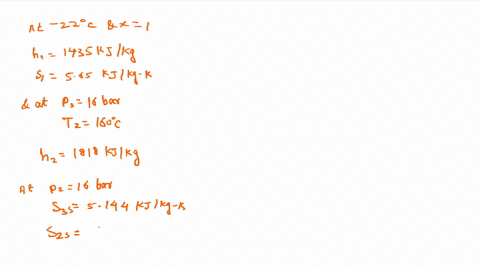 At -22°c & x=1
h₁ = 1435 KJ/kg
S₁ = 5.65 KJ/kg-K
& at P₂=16 bar
T₂=160°C
h₂=1818 KJ/kg
At P₂=16 bar
S₃s= 5.144 KJ/kg-K
S₂s=